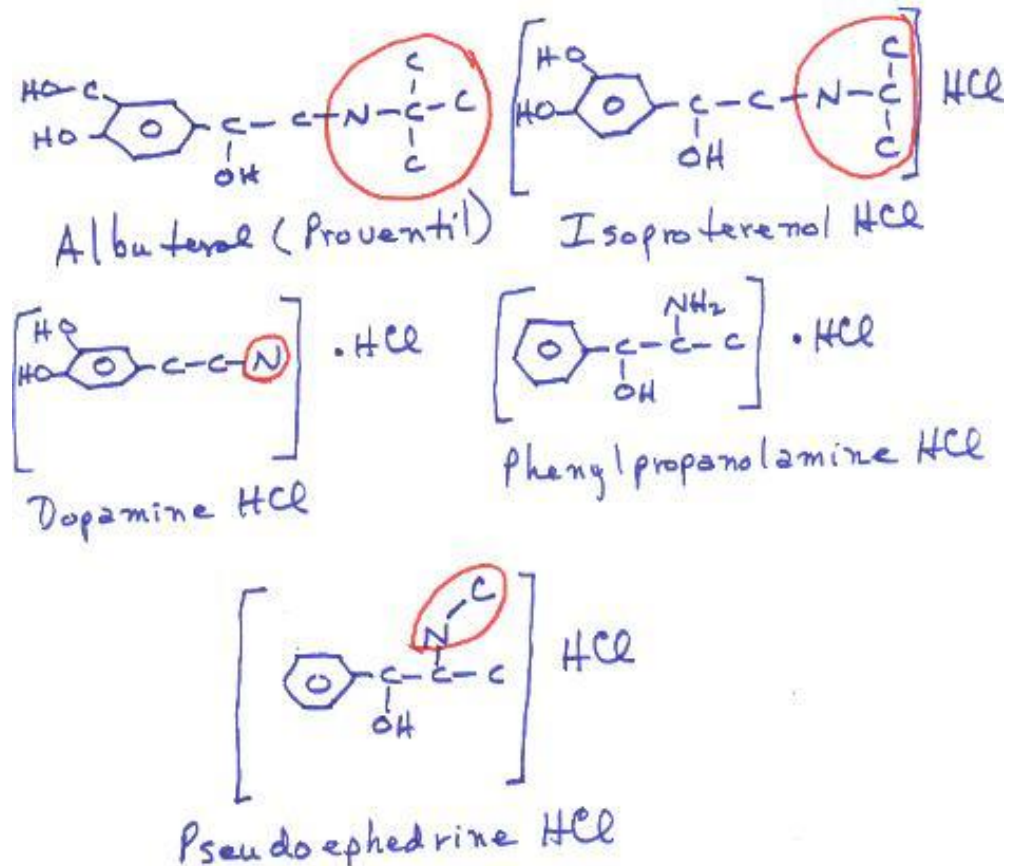 C
HO-C
HO
C-C-N-C-C
OH
C
Albuterol (Proventil)
HO
C
HO
C-C-N-C
OH
C
HCl
Isoproterenol HCl
HO
HO
C-C-N
·HCl
Dopamine HCl
NH2
C-C-C
OH
·HCl
Phenylpropanolamine HCl
C
N
C-C-C
OH
HCl
Pseudoephedrine HCl